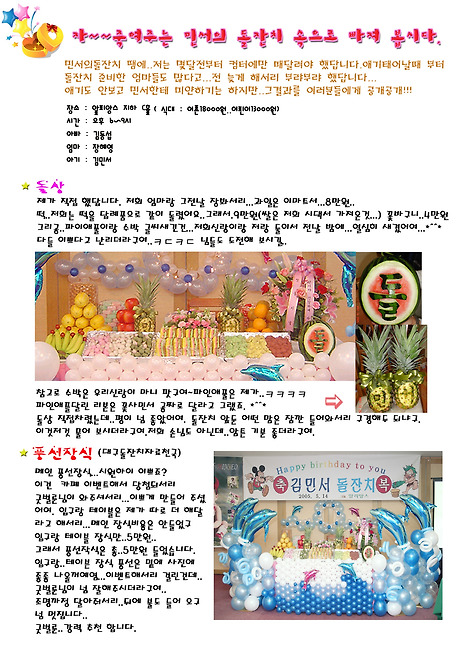 자~~죽여주는 민서의 돌잔치 속으로 빠져 봅시다.
민서의돌잔치 땜에..저는 몇달전부터 컴터에만 매달려야 했답니다.애기태어날때 부터
돌잔치 준비한 엄마들도 많다고...전 늦게 해서리 부랴부랴 했답니다...
애기도 안보고 민서한테 미안하기는 하지만..그결과를 여러분들에게 공개공개!!!
장소 : 알리앙스 지하 대
시간 : 오후 6~9시
아빠 : 김동섭
엄마 : 장혜영
아기 : 김민서
돌상
제가 직접 했답니다. 저희 엄마랑 그전날 장봐서리...과일은 이마트서...8만원..
떡..저희는 떡을 답례품으로 같이 돌렸어요..그래서.9만원(쌀은 저희 시댁서 가져온것...) 꽃바구니..4만원
그리고..파이애플이랑 수박 글씨새긴건...저희신랑이랑 저랑 둘이서 전날 밤에...열심히 새겼어여...*^^*
다들 이쁘다고 난리더라구여..ㅋㄷㅋㄷ 님들도 도전해 보시길..
돌
참고로 수박은 우리신랑이 마니 팠구여~파인애플은 제가..ㅋㅋㅋㅋ
파인애플달린 리본은 꽃사면서 공짜로 달라고 그랬죠. *^^*
돌상 직접차렸는데..평이 넘 좋았어여. 돌잔치 않는 어떤 많은 잠깐 들어와서리 구경해도 되냐구.
이것저것 물어 보시더라구여.저희 손님도 아닌데..암튼 기분 좋더라구여.
풍선장식 (대구돌잔치자료천국)
메인 풍선장식...시원하이 이쁘죠?
이건 카페 이벤트에서 당첨되서리
굿벌룬님이 와주셔서리...이쁘게 만들어 주셨
어여. 입구랑 테이블은 제가 따로 더 해달
라고 해서리...메인 장식비용은 안들었구
입구랑 테이블 장식만..5만원..
그래서 풍선장식은 총..5만원 들었습니다.
입구랑..테이블 장식 풍선은 밑에 사진에
종종 나올꺼에염...이벤트해서리 걸린건데..
굿벌룬님이 넘 잘해주시더라구여..
조명까정 달아줘서리..뒤에 불도 들어 오구
넘 멋집니다...
굿벌룬..강력 추천 합니다.
Happy birthday to you
축 김민서 돌잔치 복
2005. 5. 14